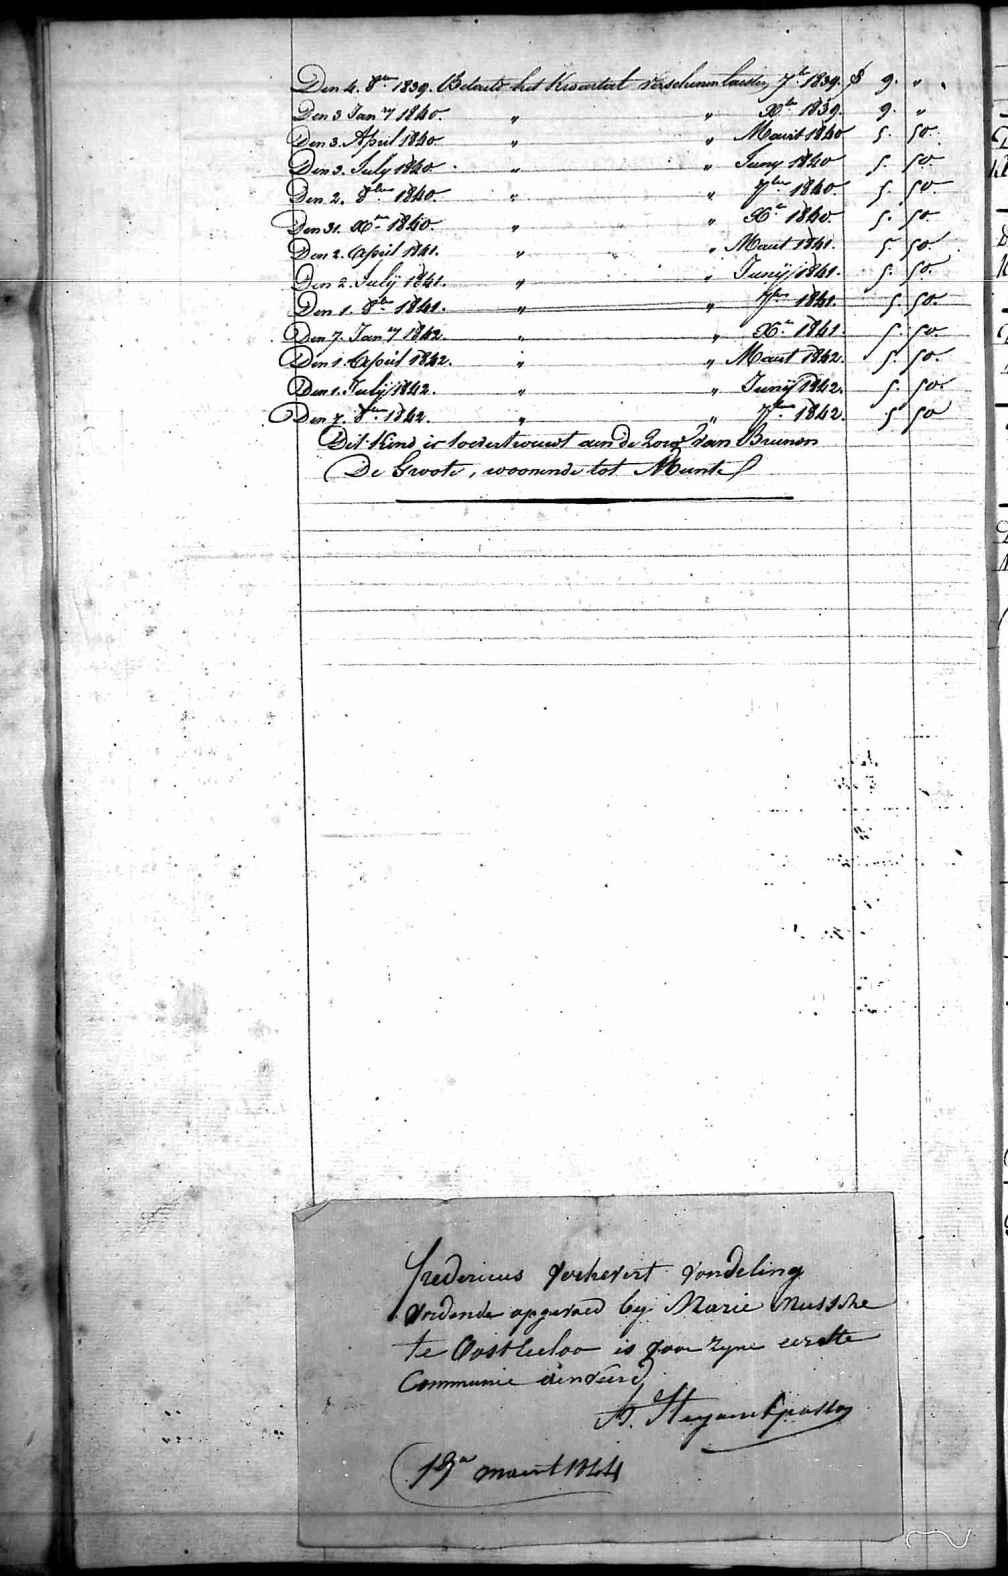 Den 4. 8bre 1839. Betaelt het kwartael verschenen laesten 7bre 1839. f 9. "
Den 3 Jany 1840. " " Xbre 1839. 9. "
Den 3. April 1840. " " Maert 1840 5. 50.
Den 3. July 1840. " " Juny 1840 5. 50.
Den 2. 8bre 1840. " " 7bre 1840. 5. 50.
Den 31. Xbre 1840. " " Xbre 1840 5. 50.
Den 2. April 1841. " " Maert 1841. 5. 50.
Den 2. Julij 1841. " " Junij 1841. 5. 50.
Den 1. 8bre 1841. " " 7bre 1841. 5. 50.
Den 7. Jany 1842. " " Xbre 1841. 5. 50.
Den 1. April 1842. " " Maert 1842. 5. 50.
Den 1. Julij 1842. " " Junij 1842. 5. 50.
Den 7. 8bre 1842. " " 7bre 1842. 5 50
Dit kind is toevertrouwt aen de van Brunon
De Groote, woonende tot Munte
fredericus vondeling
wordende opgevoed by Marie Mussche
te Oosteecloo is voor zyne eerste
Communie aenveird
maert 1844